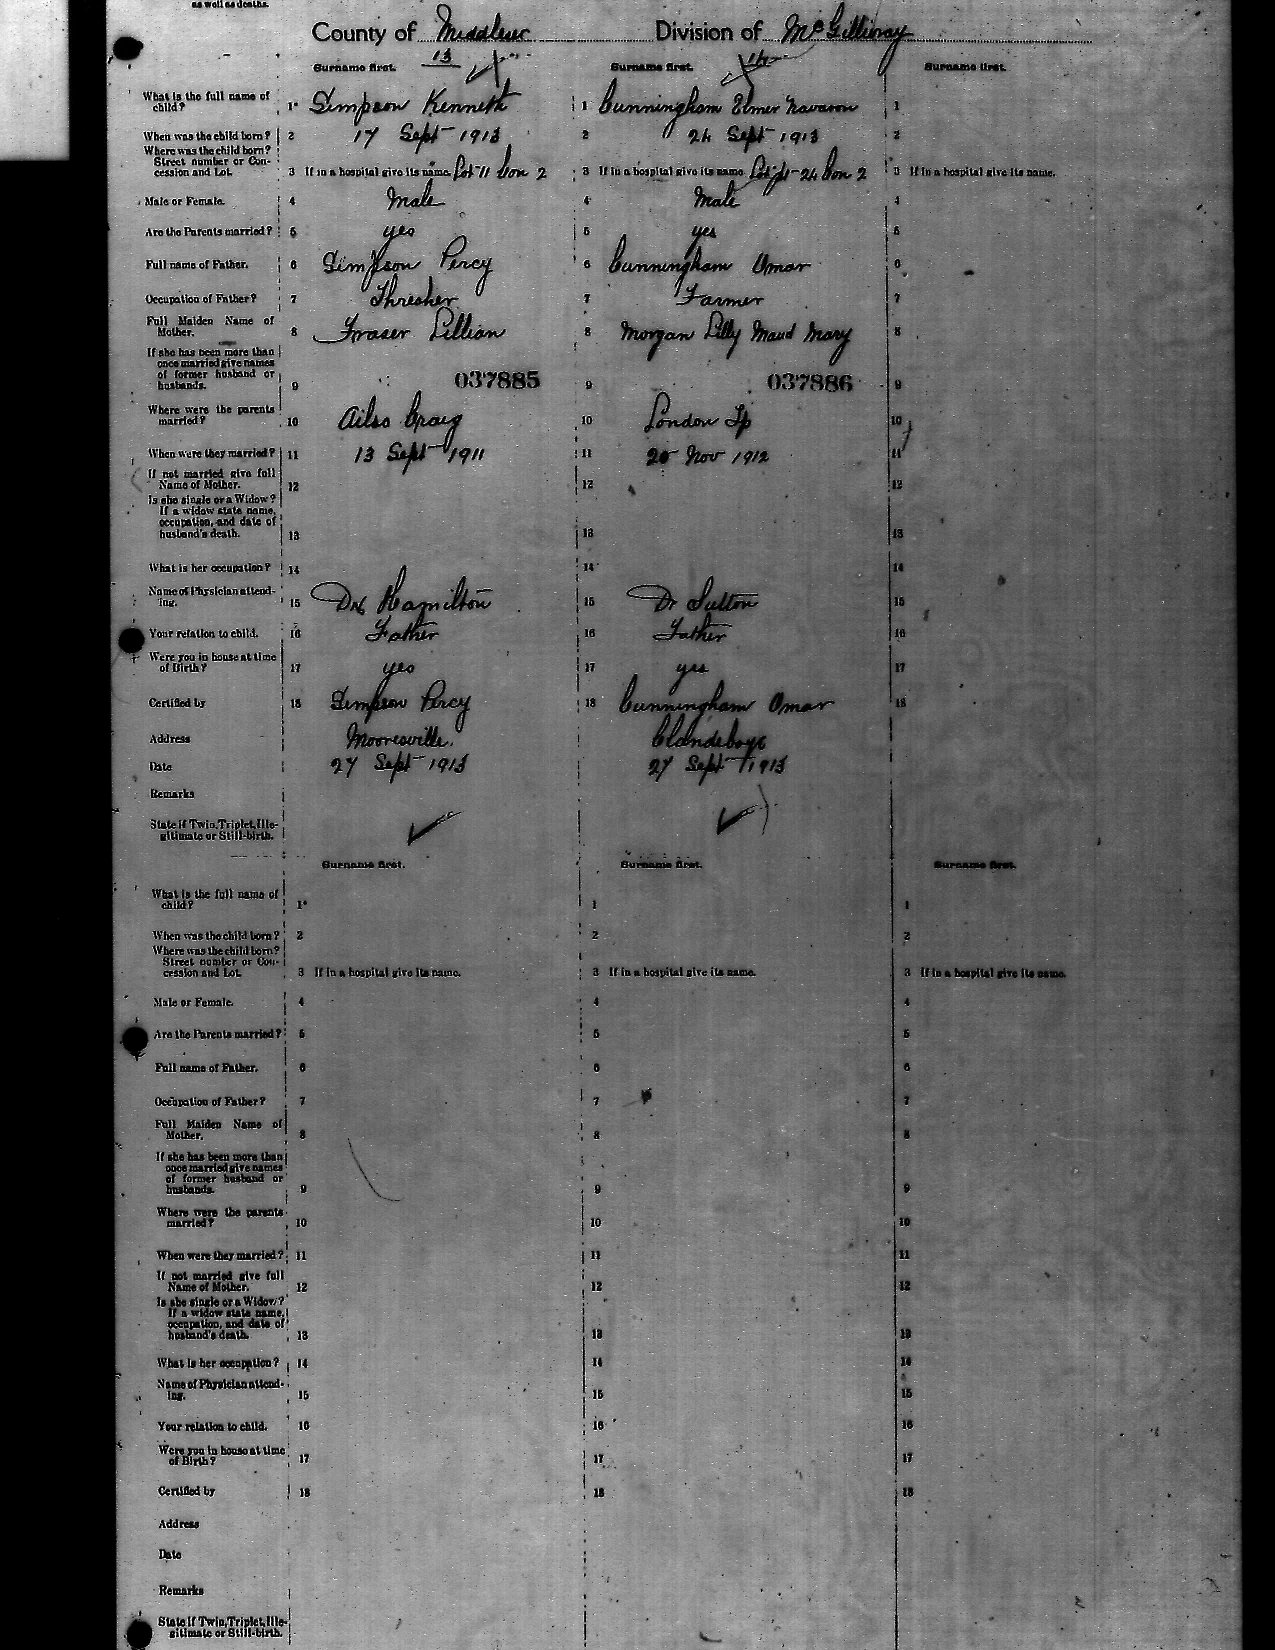 as well as deaths.
County of Middlesex Division of McGillivray
13 14
Surname first. Surname first. Surname first.
What is the full name of child? 1 Simpson Kenneth 1 Cunningham Elmer 1
When was the child born? 2 17 Sept 1913 2 24 Sept 1913 2
Where was the child born?
Street number or Con-
cession and Lot. 3 If in a hospital give its name. Lot 11 Con 2 3 If in a hospital give its name. Lot pt 24 Con 2 3 If in a hospital give its name.
Male or Female. 4 Male 4 Male 4
Are the Parents married? 5 yes 5 yes 5
Full name of Father. 6 Simpson Percy 6 Cunningham Omar 6
Occupation of Father? 7 Thresher 7 Farmer 7
Full Maiden Name of
Mother. 8 Fraser Lillian 8 Morgan Lilly Maud Mary 8
If she has been more than
once married give names
of former husband or
husbands. 9 037885 9 037886 9
Where were the parents
married? 10 Ailsa Craig 10 London Tp 10
When were they married? 11 13 Sept 1911 11 20 Nov 1912 11
If not married give full
Name of Mother. 12 12 12
Is she single or a Widow?
If a widow state name,
occupation, and date of
husband's death. 13 13 13
What is her occupation? 14 14 14
Name of Physician attend-
ing. 15 Dr Hamilton 15 Dr Sutton 15
Your relation to child. 16 Father 16 Father 16
Were you in house at time
of Birth? 17 yes 17 yes 17
Certified by 18 Simpson Percy 18 Cunningham Omar 18
Address Mooresville Clandeboye
Date 27 Sept 1913 27 Sept 1913
Remarks
State if Twin, Triplet, Ille-
gitimate or Still-birth.
Surname first. Surname first. Surname first.
What is the full name of
child? 1 1 1
When was the child born? 2 2 2
Where was the child born?
Street number or Con-
cession and Lot. 3 If in a hospital give its name. 3 If in a hospital give its name. 3 If in a hospital give its name.
Male or Female. 4 4 4
Are the Parents married? 5 5 5
Full name of Father. 6 6 6
Occupation of Father? 7 7 7
Full Maiden Name of
Mother. 8 8 8
If she has been more than
once married give names
of former husband or
husbands. 9 9 9
Where were the parents
married? 10 10 10
When were they married? 11 11 11
If not married give full
Name of Mother. 12 12 12
Is she single or a Widow?
If a widow state name,
occupation, and date of
husband's death. 13 13 13
What is her occupation? 14 14 14
Name of Physician attend-
ing. 15 15 15
Your relation to child. 16 16 16
Were you in house at time
of Birth? 17 17 17
Certified by 18 18 18
Address
Date
Remarks
State if Twin, Triplet, Ille-
gitimate or Still-birth.